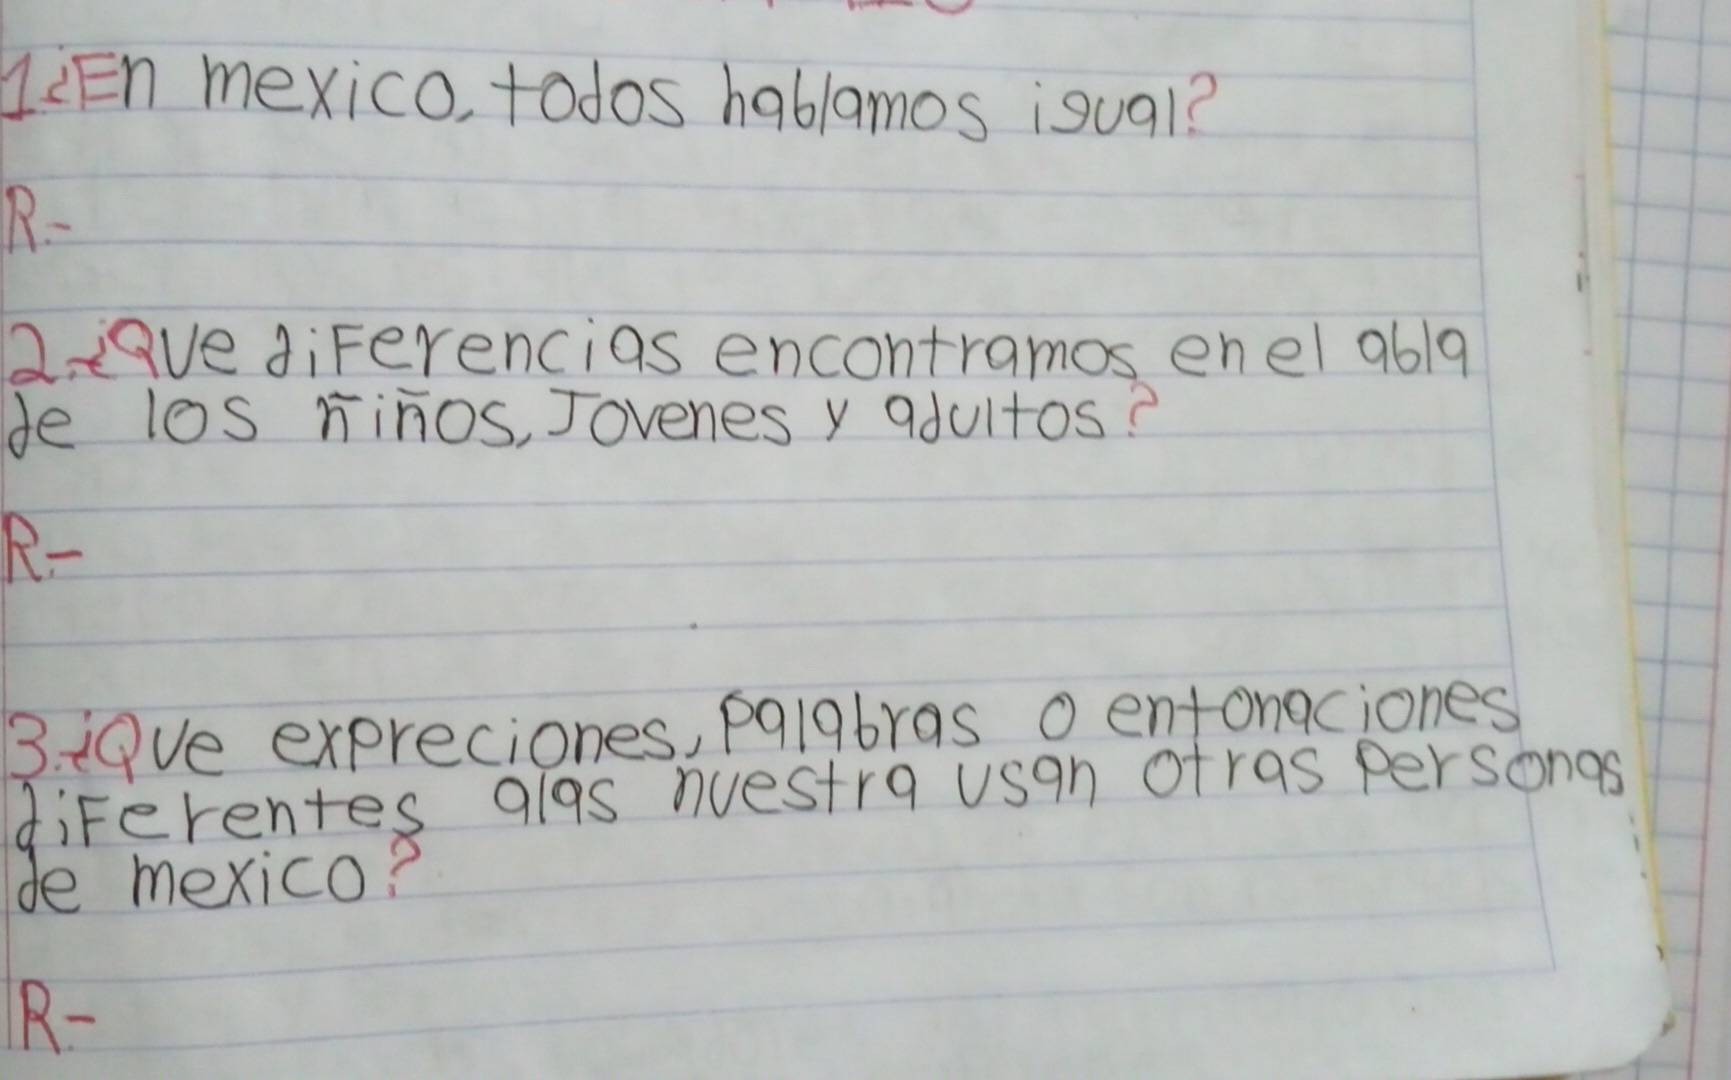 1.¿En mexico, todos hablamos igual?
R.-
2.-¿Que diferencias encontramos en el abla
de los ñiños, Jovenes y adultos?
R.-
3.-¿Que expreciones, palabras o entonaciones
diferentes alas nuestra usan otras personas
de mexico?
R.-